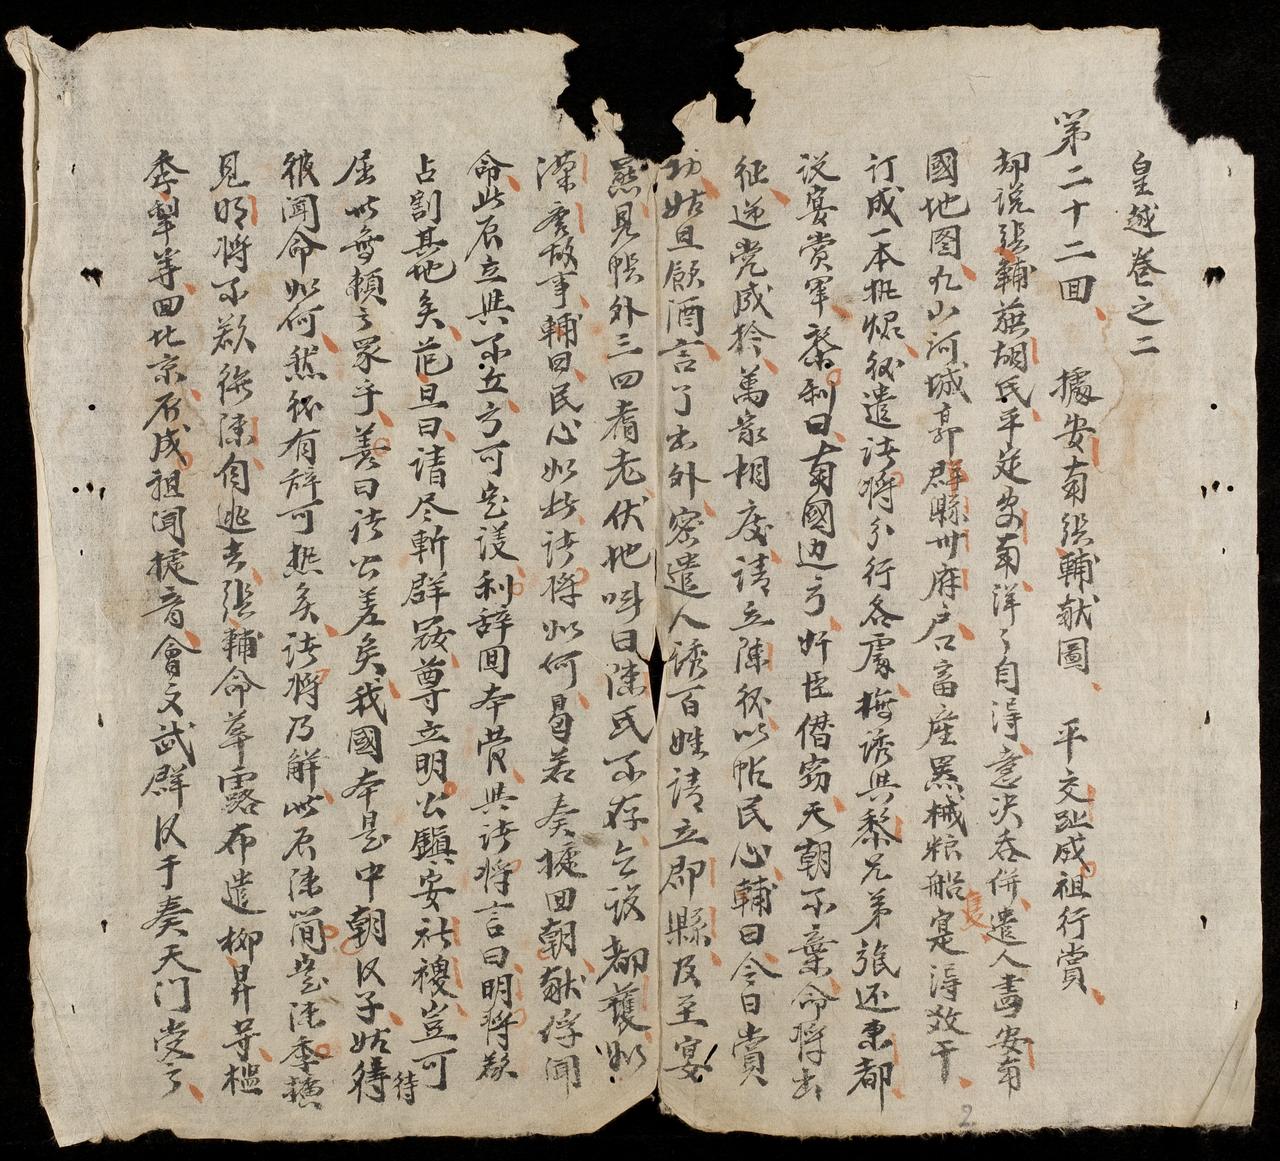 皇越卷之二
第二十二回　據安南張輔献圖　平交趾成祖行賞
却説張輔蔟胡氏平定安南洋々自得意决吞併遣人畫安南
國地图凡山河城郭群縣卅府户口畜産器械粮船寔得数干
訂成一本批焜後遣諸將分行各處撫誘與黎兄弟張还東都
设宴賞軍黎利曰南國边方奸臣僭窃天朝不棄命將出
征逆党成擒萬家相度請立陳後以帖民心輔曰今日賞
功姑且領酒言了出外密遣人誘百姓請立郡縣及至宴
羆見帳外三四耆老伏地呌曰陳氏不存乞设都護如
漢唐故事輔曰民心如此諸將如何晟若奏捷回朝献俘聞
命此辰立與不立方可定议利辞回本营與諸將言曰明將欲
占割其地矣范旦曰請尽斬群寇尊立明公鎮安社稷豈可
屈此無頼之眾乎善曰諸公差矣我國本是中朝臣子姑待
彼聞命如何然後有辞可㨿矣諸將乃解此辰陳簡定陳季擴
見明將不欲後陳自逃去張輔命草露布遣柳昇等檻
季犛等回北京不成祖聞捷音會文武群臣于奏天门受之
待
隻
2